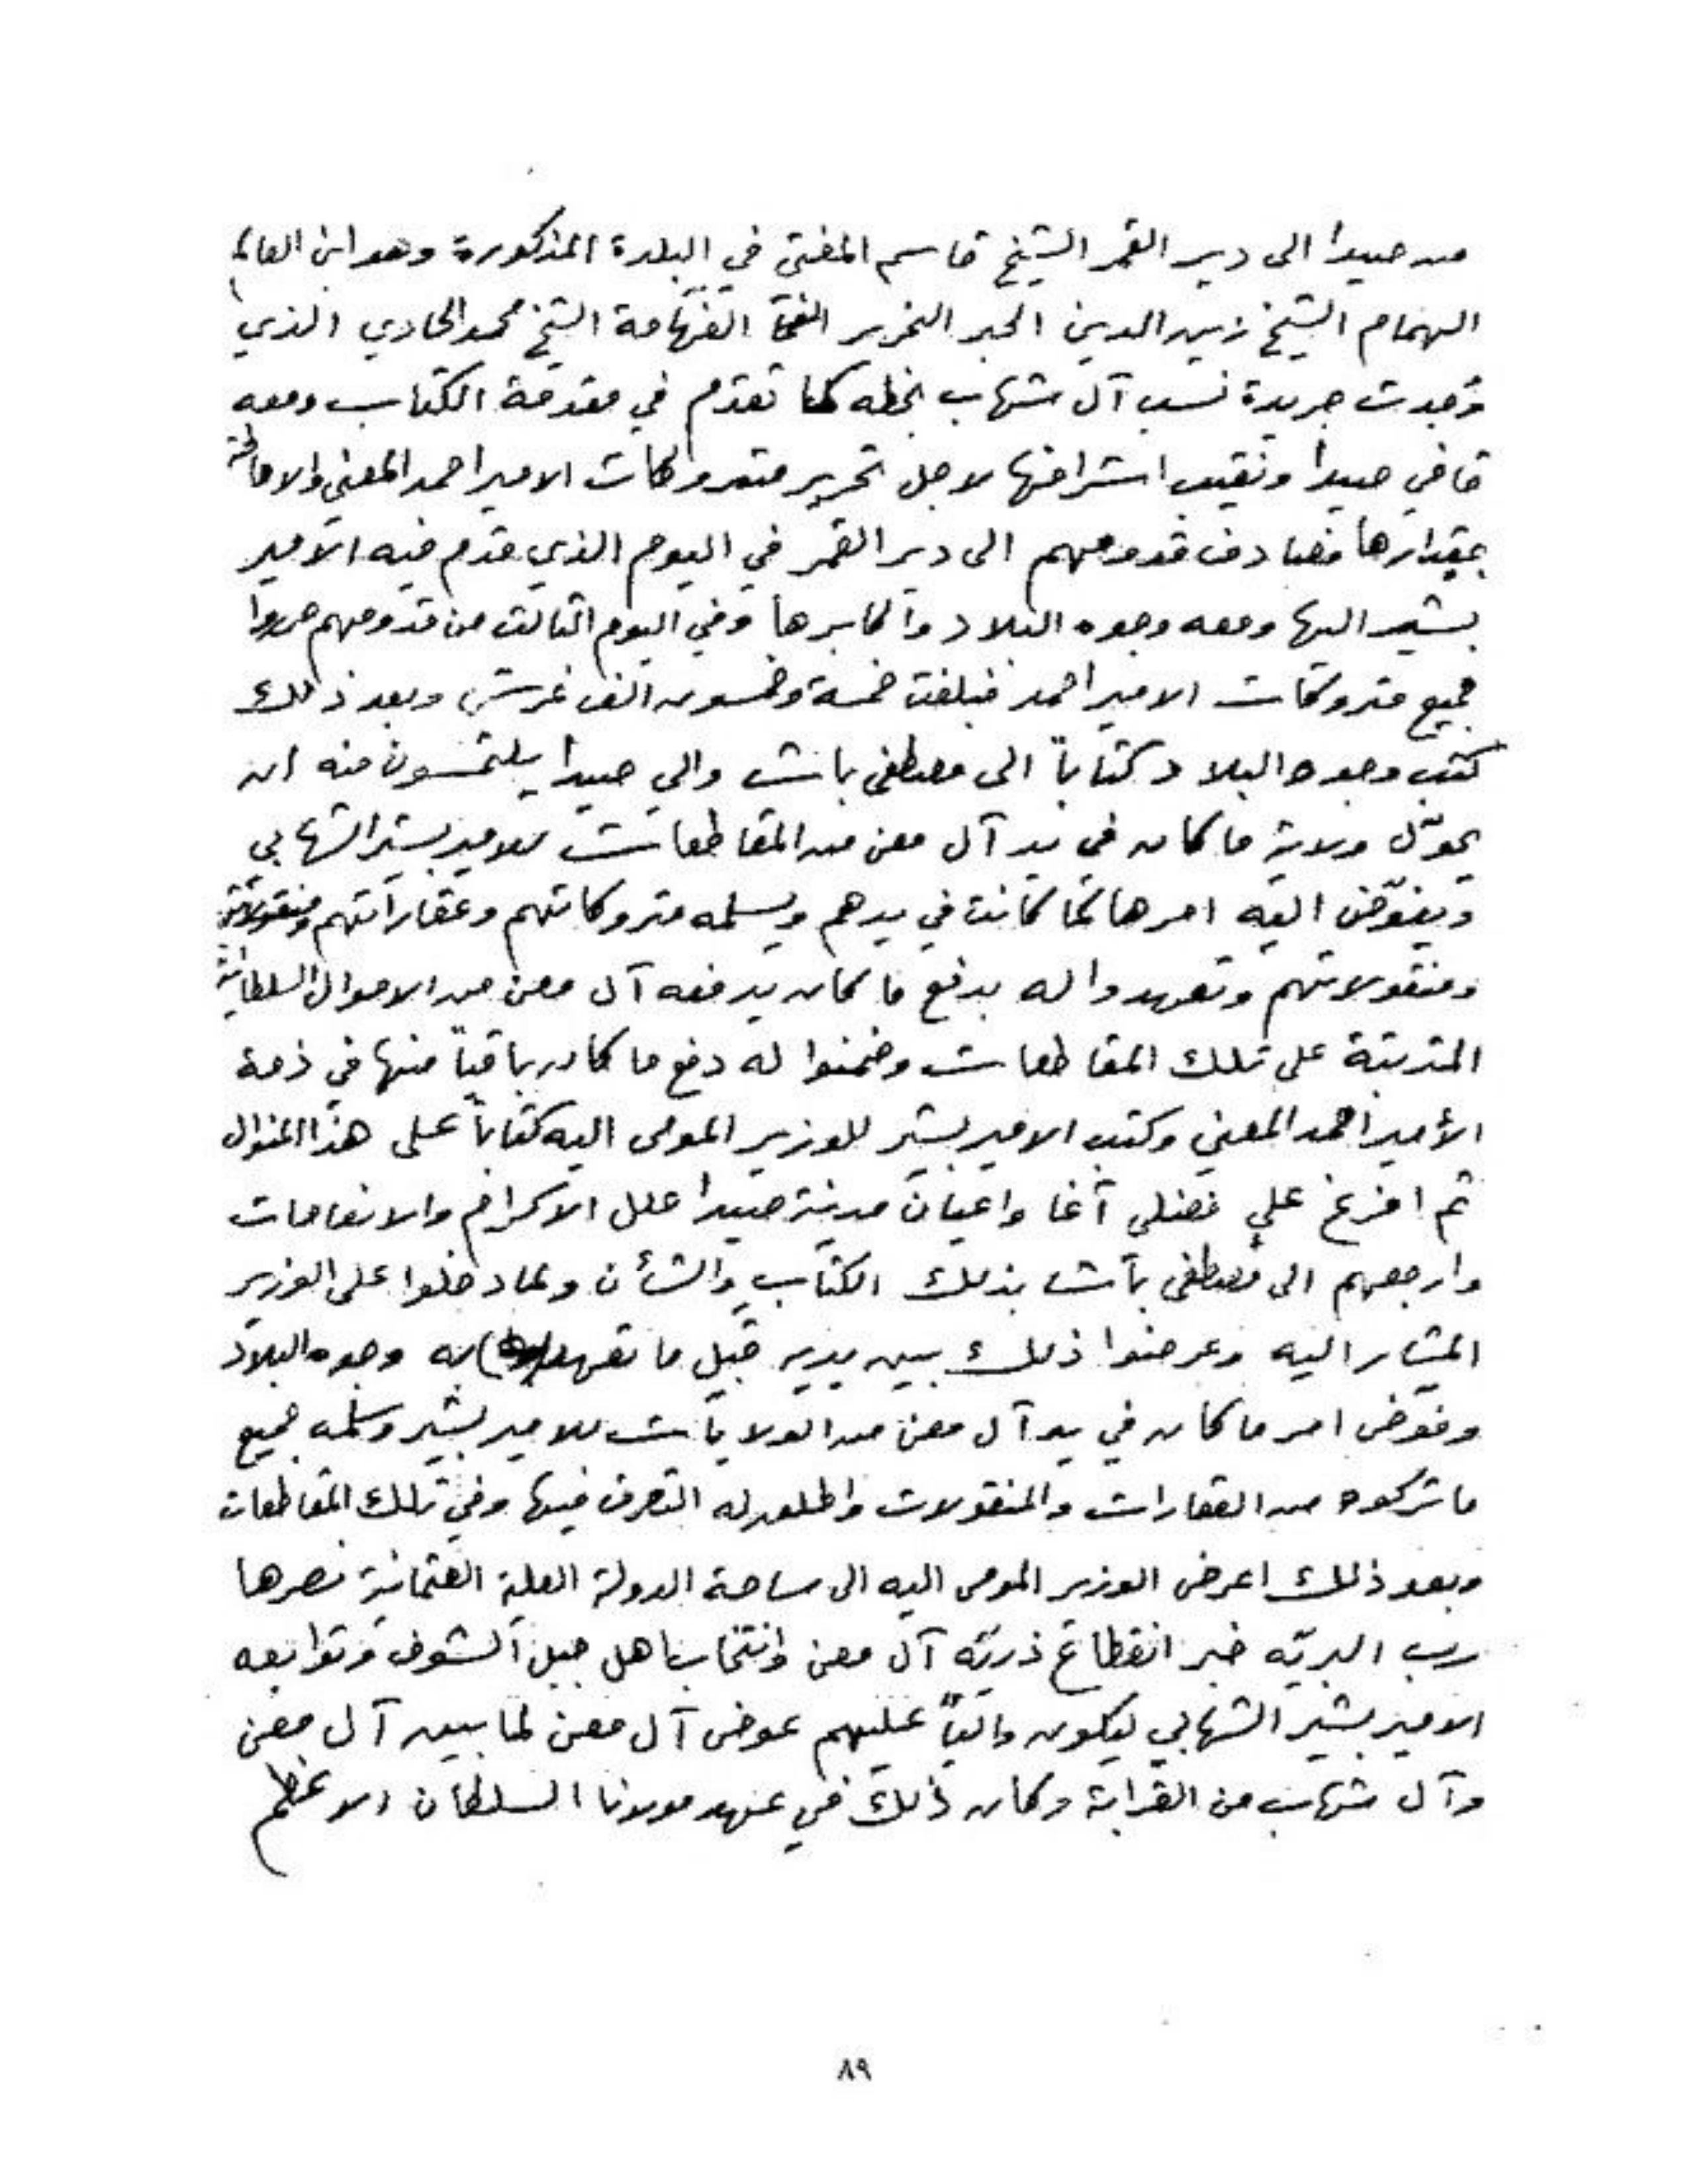 من صيدا الى دير القمر الشيخ قاسم المفتي في البلدة المذكورة وهو ابن العالم
الهمام الشيخ زين الدين الحبر النحرير الفهامة الشيخ محمد الحادي الذي
وجدت جريدة نسب آل شهاب بخطه كما تقدم في مقدمة الكتاب ومعه
قاضي صيدا ونقيب اشرافها لاجل تحرير متروكات الامير احمد المعني والاحاطة
بمقدارها فصادف قدومهم الى دير القمر في اليوم الذي قدم فيه الامير
بشير اليها ومعه وجوه البلاد واكابرها وفي اليوم الثالث من قدومهم حرروا
جميع متروكات الامير احمد فبلغت خمسة وخمسون الف غرش وبعد ذلك
كتب وجوه البلاد كتاباً الى مصطفى باشا والي صيدا يلتمسون منه ان
يحوّل ولاية ما كان في يد آل معن من المقاطعات للامير بشير الشهابي
ويفوّض اليه امرها كما كانت في يدهم ويسلمه متروكاتهم وعقاراتهم ومنقولاتهم
ومنقولاتهم وتعهدوا له بدفع ما كان يدفعه آل معن من الاموال السلطانية
المترتبة على تلك المقاطعات وضمنوا له دفع ما كان باقياً منها في ذمة
الأمير احمد المعني وكتب الامير بشير للوزير المومى اليه كتاباً على هذا المنوال
ثم افرغ على فضلي آغا واعيان مدينة صيدا حلل الاكرام والانعامات
وارجعهم الى مصطفى باشا بذلك الكتاب والشأن ولما دخلوا على الوزير
المشار اليه وعرضوا ذلك بين يديه قبل ما تعهد به وجوه البلاد
وفوّض امر ما كان في يد آل معن من الولايات للامير بشير وسلمه جميع
ما تركوه من العقارات والمنقولات واطلق له التصرف فيها وفي تلك المقاطعات
وبعد ذلك اعرض الوزير المومى اليه الى ساحة الدولة العلية العثمانية نصرها
رب البريّه خبر انقطاع ذريّه آل معن وانتخاب اهل جبل الشوف وتوابعه
الامير بشير الشهابي ليكون والياً عليهم عوض آل معن لما بين آل معن
وآل شهاب من القرابة وكان ذلك في عهد مولانا السلطان الاعظم
٨٩